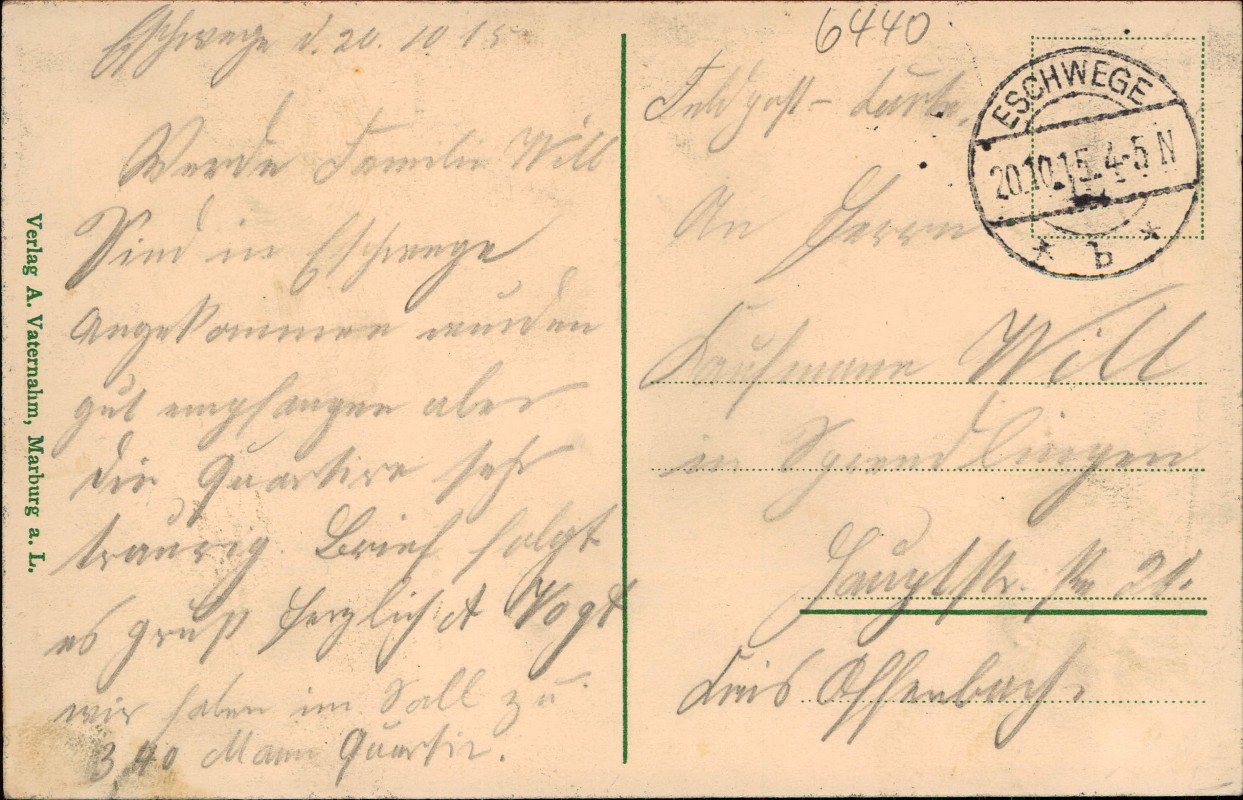 Eschwege d. 20. 10 15
Werde Familie Will
Sind in Eschwege
Angekommen wurden
gut empfangen aber
die Quartire sehr
traurig. Brief folgt
es grüßt herzlichst Vogt
wir haben im Sall zu
340 Mann Quartir.
Verlag A. Vaternahm, Marburg a. L.
6440
Feldpost-Karte.
ESCHWEGE
20.10.15. 4-5 N
* b *
An Herrn
Kaufmann Will
in Sprendlingen
Hauptstr. No 20.
Kreis Offenbach.